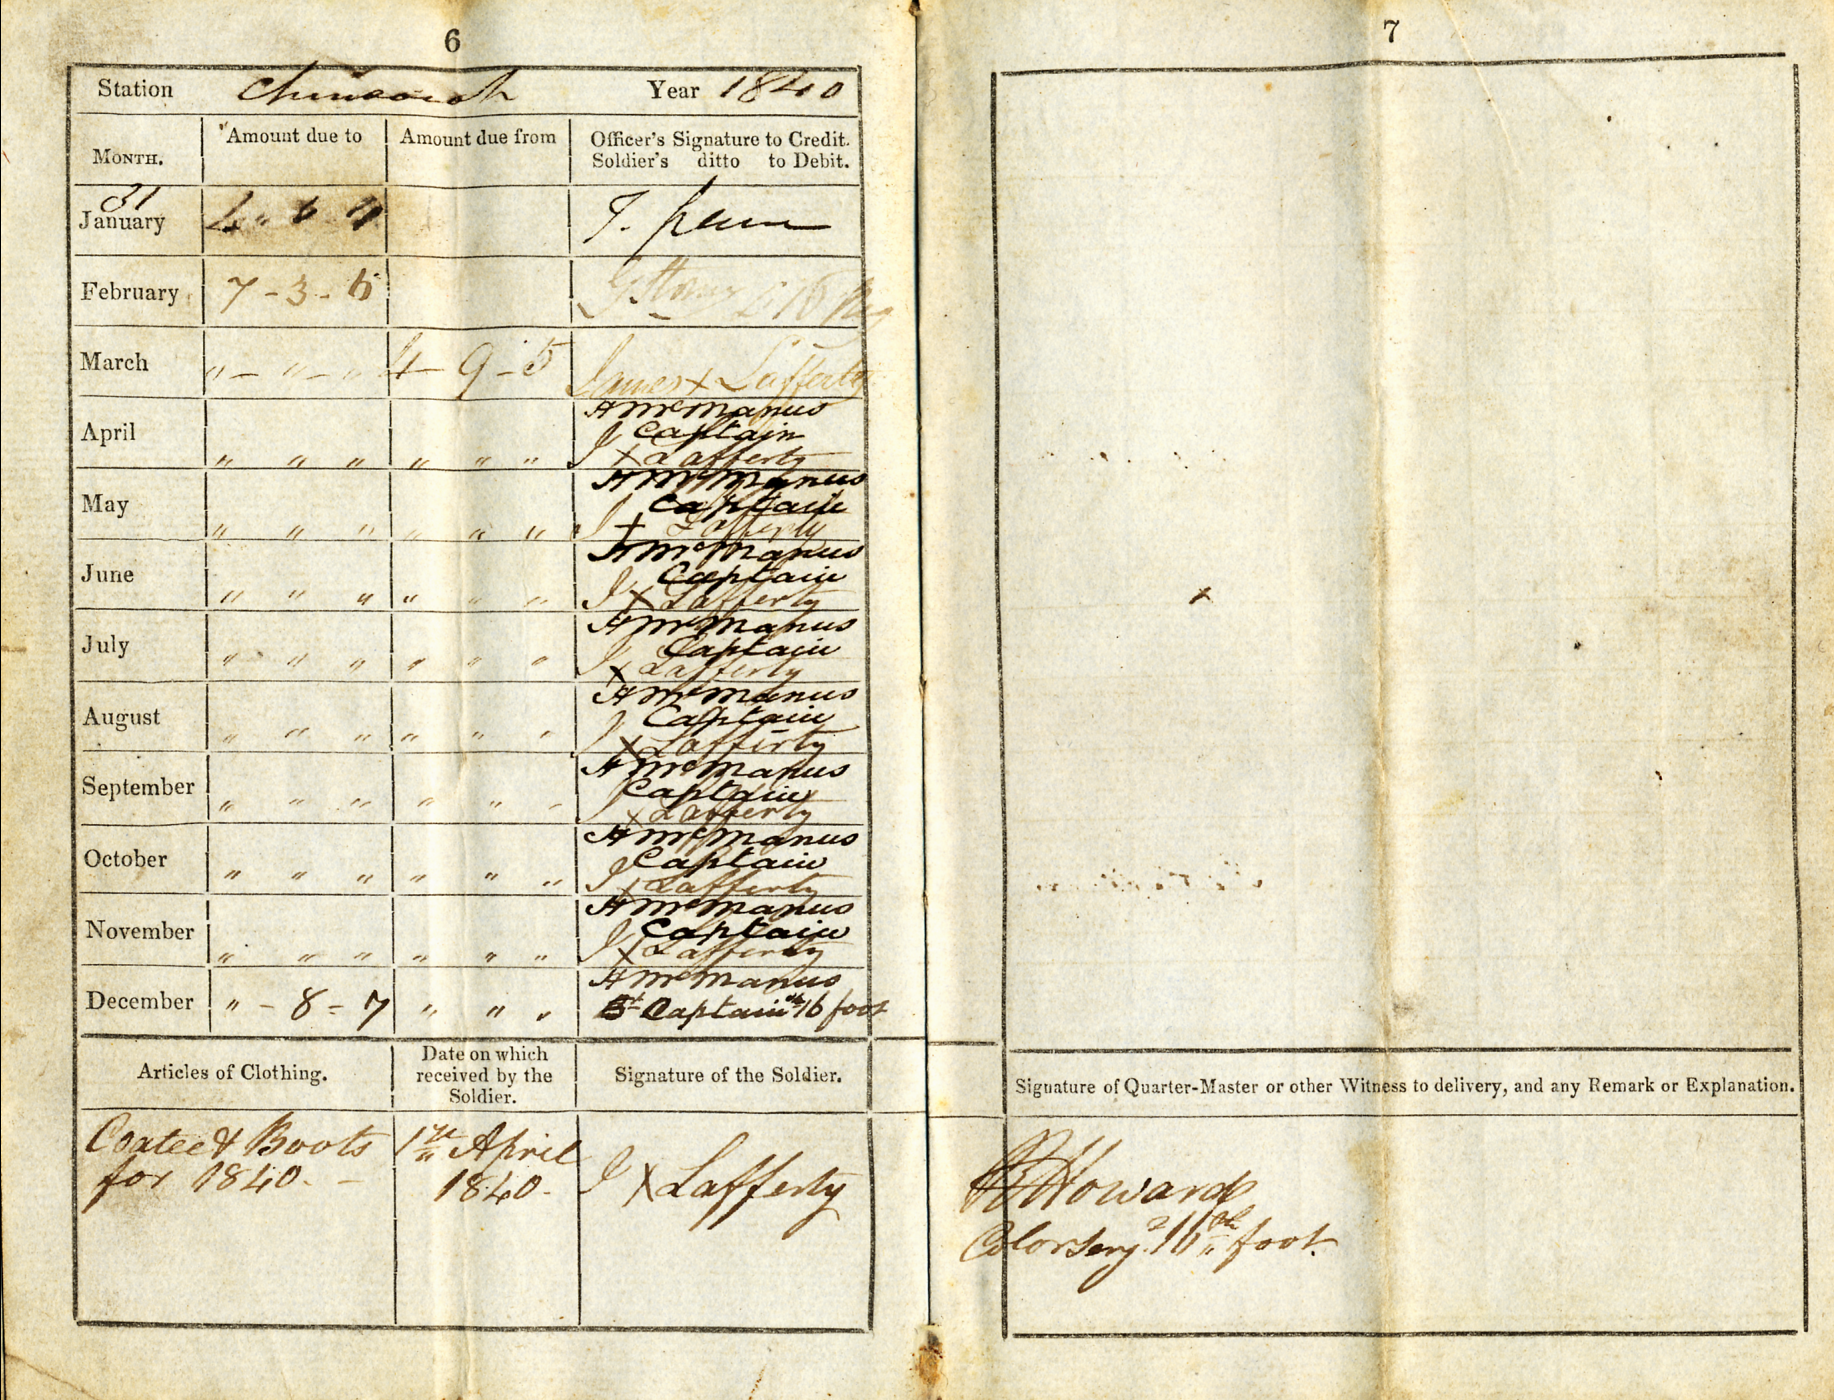 6
Station Chinsurah Year 1840
MONTH. Amount due to Amount due from Officer's Signature to Credit.
Soldier's ditto to Debit.
31
January 4 " 6 4
February 7 - 3 - 6
March " - " - " 4 - 9 - 5 James X Lafferty
A McManus
April Captain
" " " " " " J X Lafferty
A McManus
May Captain
" " " " " " J X Lafferty
A McManus
June Captain
" " " " " " J X Lafferty
A McManus
July Captain
" " " " " " J X Lafferty
A McManus
August Captain
" " " " " " J X Lafferty
A McManus
September Captain
" " " " " " J X Lafferty
A McManus
October Captain
" " " " " " J X Lafferty
A McManus
November Captain
" " " " " " J X Lafferty
A McManus
December " - 8 - 7 " " " Captain 16 foot
Articles of Clothing. Date on which received by the Soldier. Signature of the Soldier.
Coatee & Boots 1st April
for 1840. - 1840 - J X Lafferty
7
Signature of Quarter-Master or other Witness to delivery, and any Remark or Explanation.
Howard
Color Sergt 16th foot.